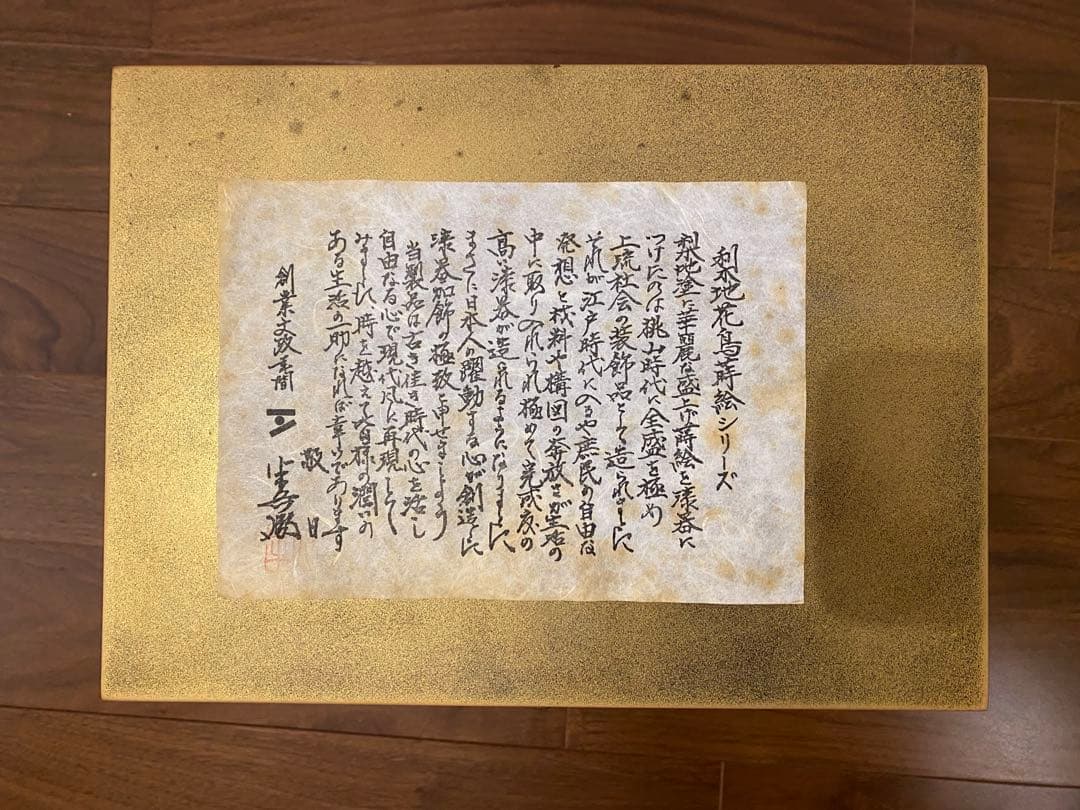 梨地花鳥蒔絵シリーズ
梨地塗に華麗な盛上げ蒔絵を漆器に
つけたのは桃山時代に全盛を極め
上流社会の装飾品として造られました
それが江戸時代に入るや庶民の自由な
発想と材料や構図の奔放さが生活の
中に取り入れられ極めて完成度の
高い漆器が造られるようになりました
まさに日本人の躍動する心が創造した
漆器加飾の極致と申せましょう
当製品は古き佳き時代の心を活し
自由なる心で現代風に再現して
みました 時を越えて皆様の潤いの
ある生活の一助になれば幸いであります
敬白
創業文政年間